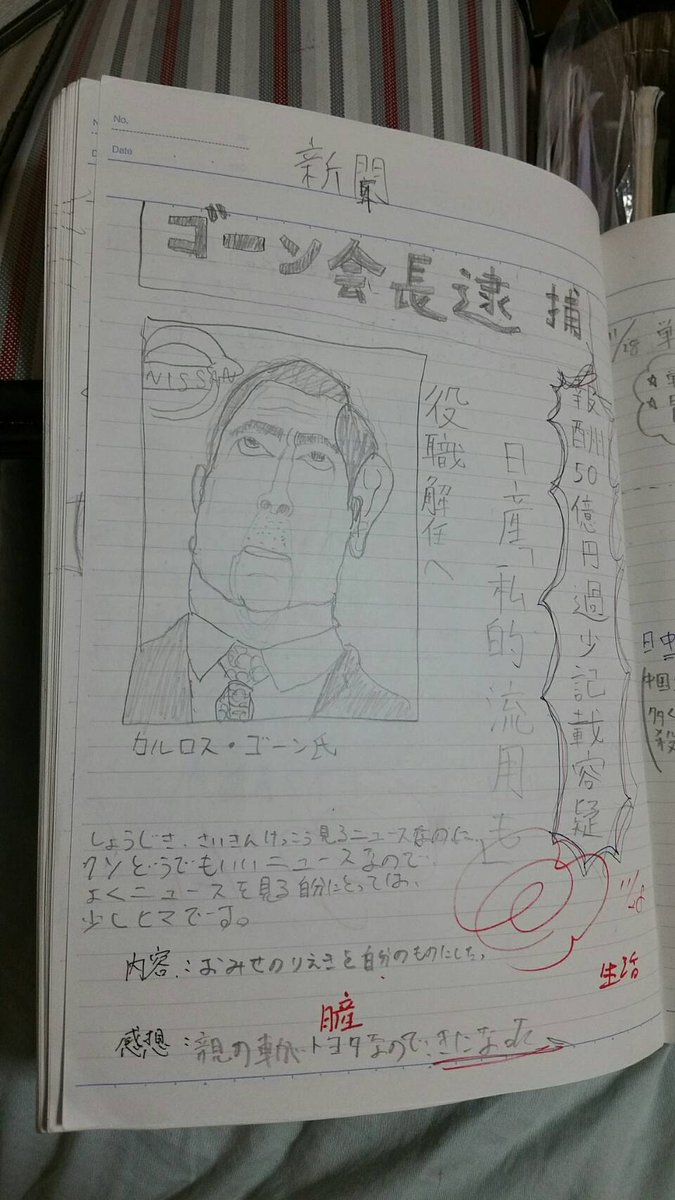 No.
Date
新聞
ゴーン会長逮捕
報酬50億円過少記載容疑
日産「私的流用も」
役職解任へ
NISSAN
カルロス・ゴーン氏
しょうじき、さいきんけっこう見るニュースなのに、
クソどうでもいいニュースなので、
よくニュースを見る自分にとっては、
少しヒマでーす。
内容：おみせのりえきを自分のものにした。
日産
感想：親の車がトヨタなので、
生活
11/28
日中
中国
殺